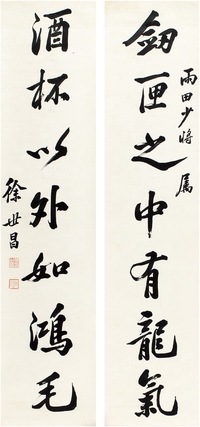 劒匣之中有龍氣
雨田少將屬
酒杯以外如鴻毛
徐世昌